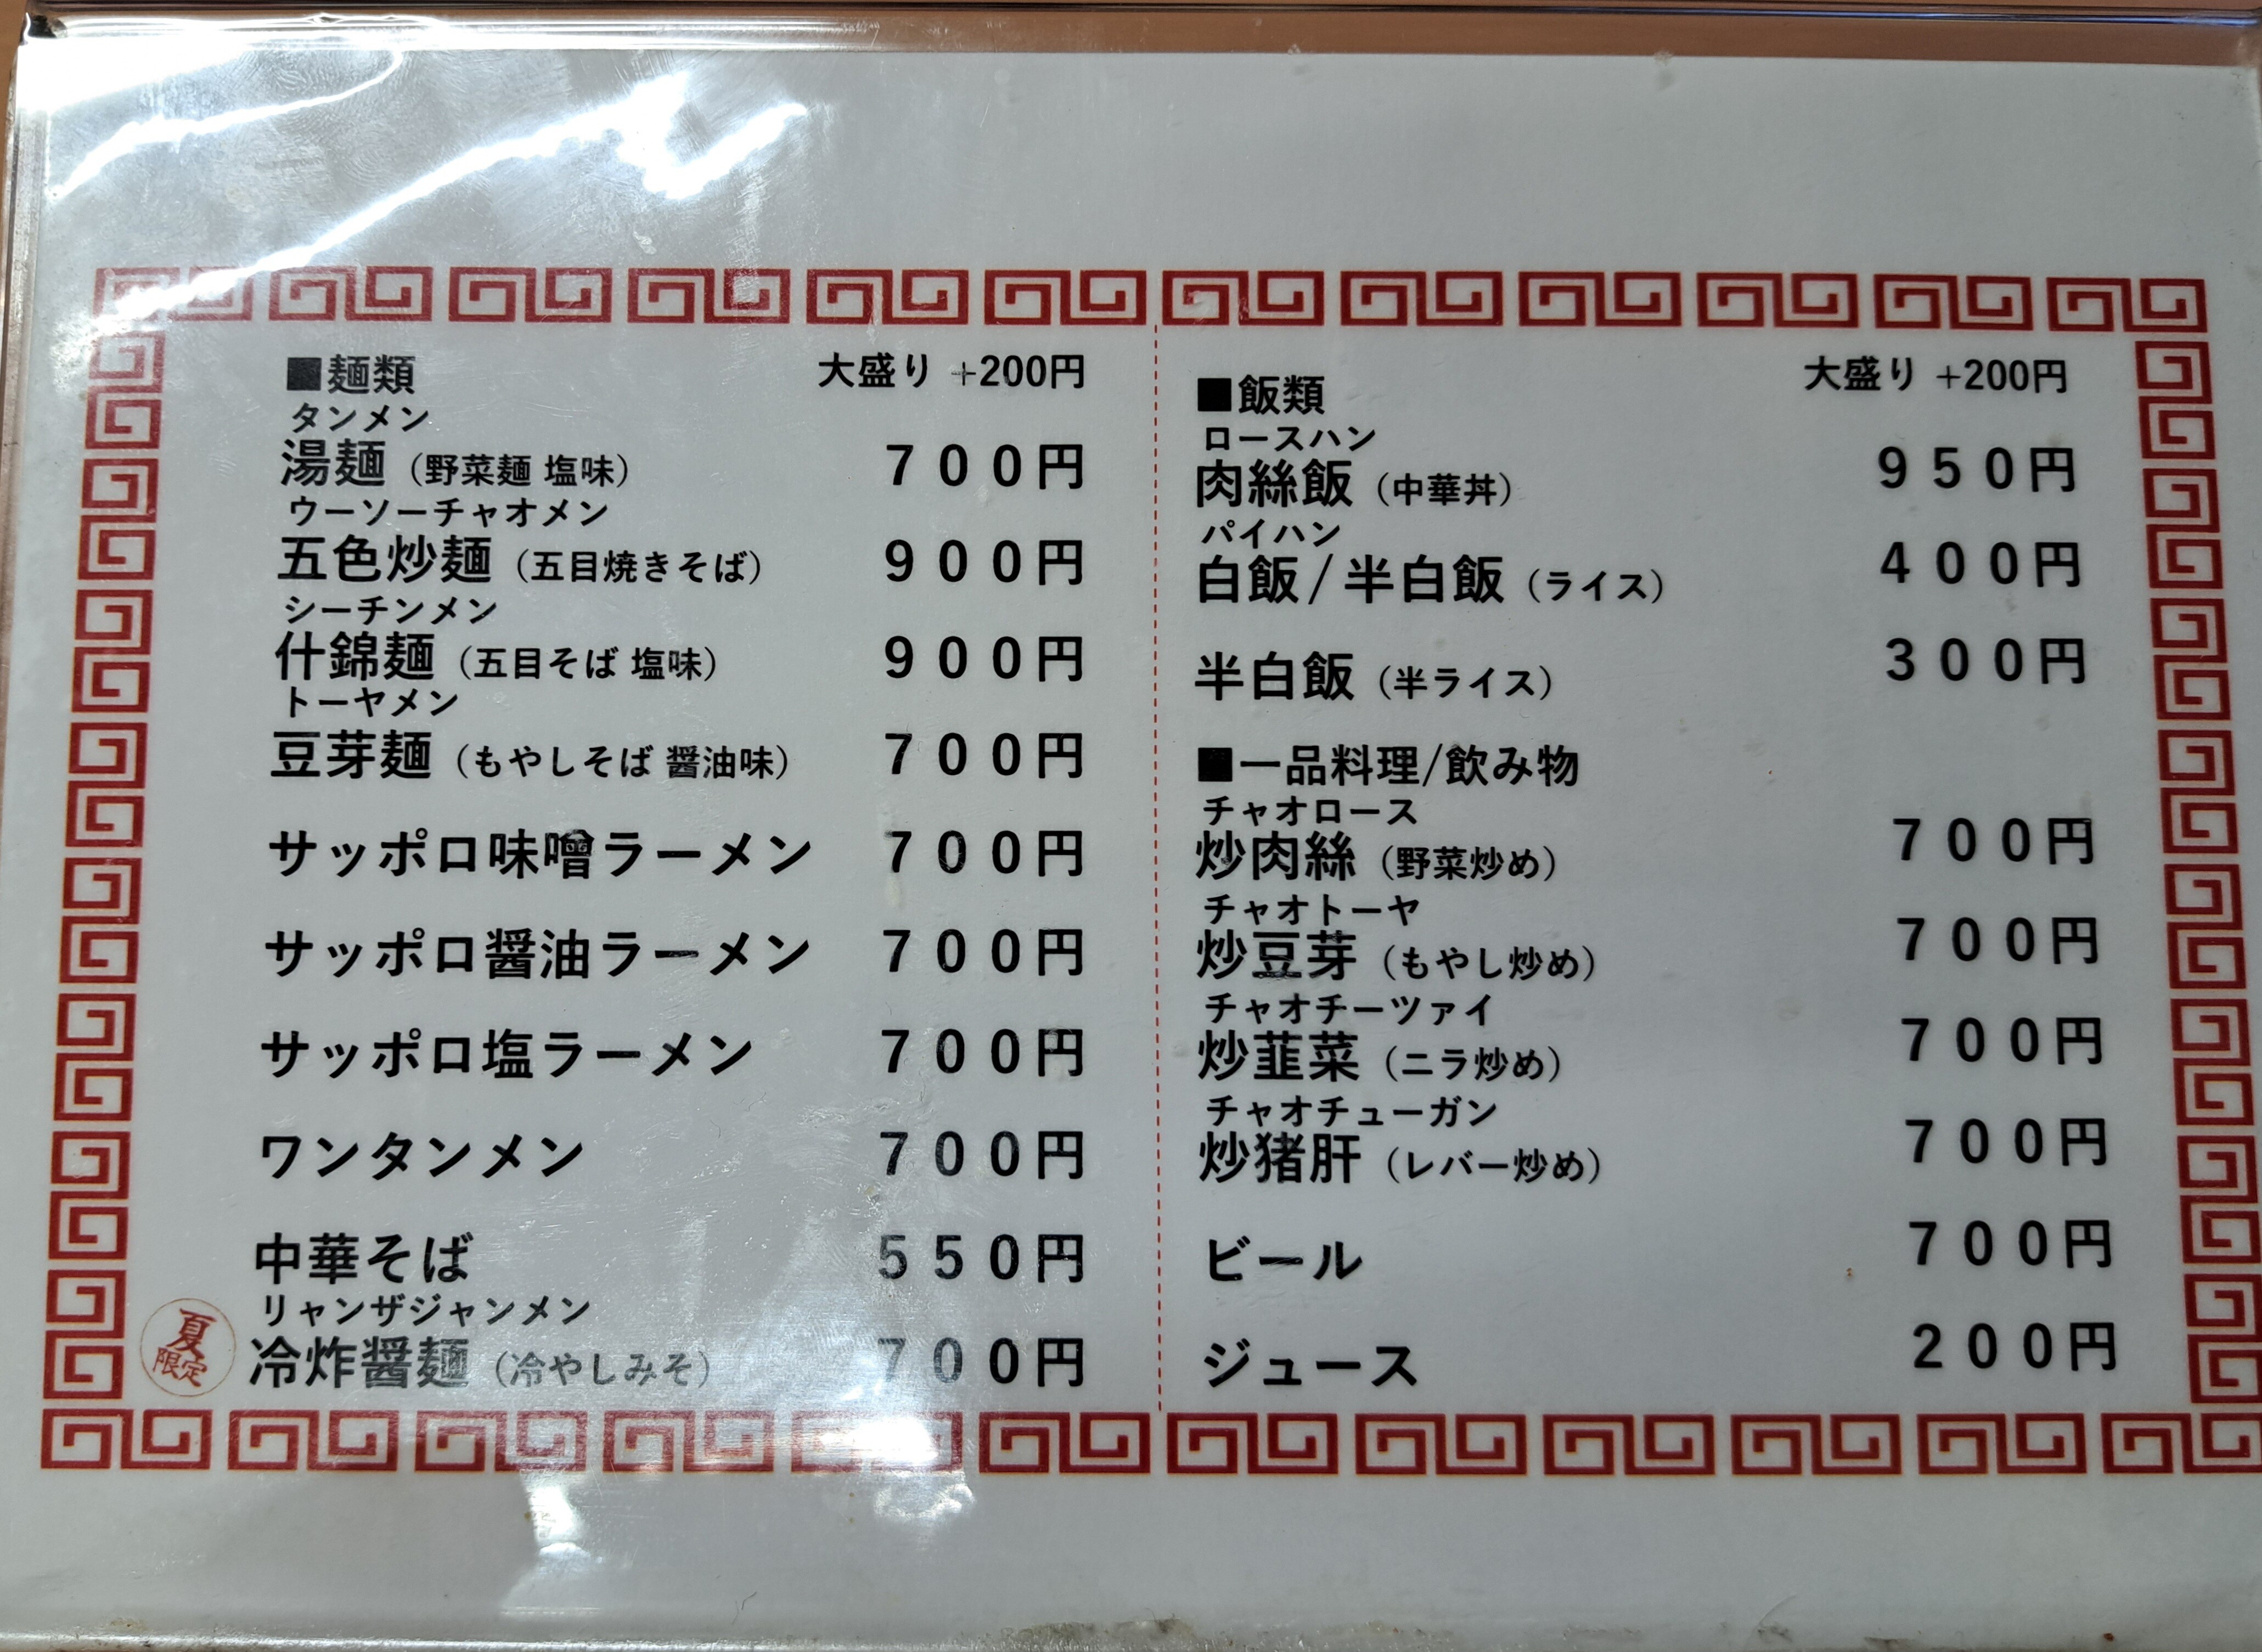 ■麺類 大盛り +200円
タンメン
湯麺（野菜麺 塩味） 700円
ウーソーチャオメン
五色炒麺（五目焼きそば） 900円
シーチンメン
什錦麺（五目そば 塩味） 900円
トーヤメン
豆芽麺（もやしそば 醤油味） 700円
サッポロ味噌ラーメン 700円
サッポロ醤油ラーメン 700円
サッポロ塩ラーメン 700円
ワンタンメン 700円
中華そば 550円
リャンザジャンメン
夏限定 冷炸醤麺（冷やしみそ） 700円
■飯類 大盛り +200円
ロースハン
肉絲飯（中華丼） 950円
パイハン
白飯/半白飯（ライス） 400円
半白飯（半ライス） 300円
■一品料理/飲み物
チャオロース
炒肉絲（野菜炒め） 700円
チャオトーヤ
炒豆芽（もやし炒め） 700円
チャオチーツァイ
炒韮菜（ニラ炒め） 700円
チャオチューガン
炒猪肝（レバー炒め） 700円
ビール 700円
ジュース 200円